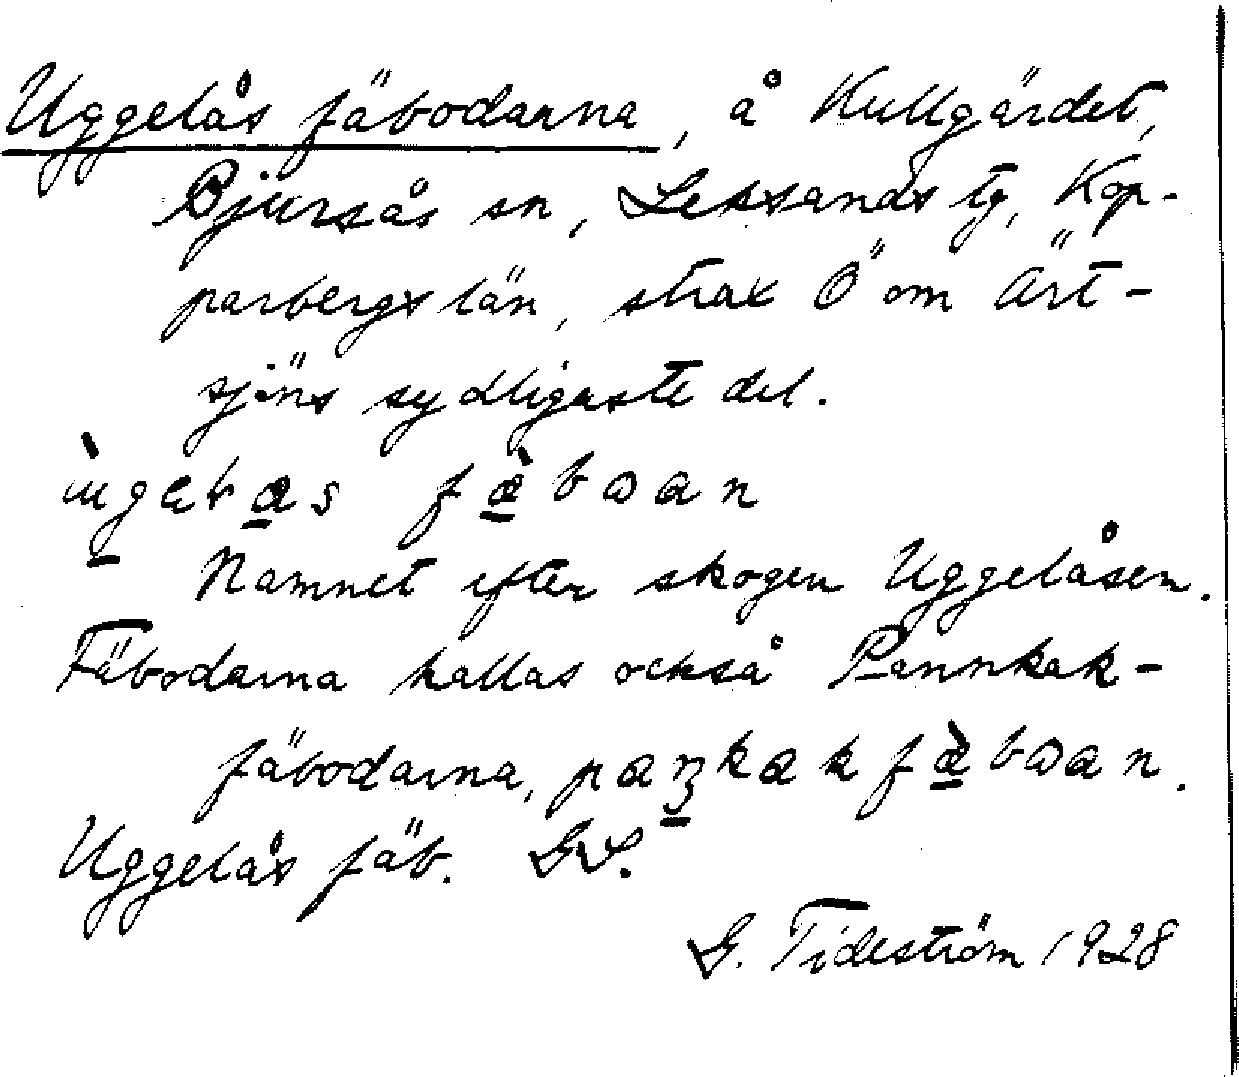 Uggelås fäbodarna, å Kullgärdet,
Bjursås sn, Leksands tg, Kop-
parbergs län, strax Ö om Ärt-
sjöns sydligaste del.
fæ̀bɷan
Namnet efter skogen Uggelåsen.
Fäbodarna kallas också Pannkak-
fäbodarna, paȵkakfæ̀bɷan.
Uggelås fäb. GS.
G. Tideström 1928